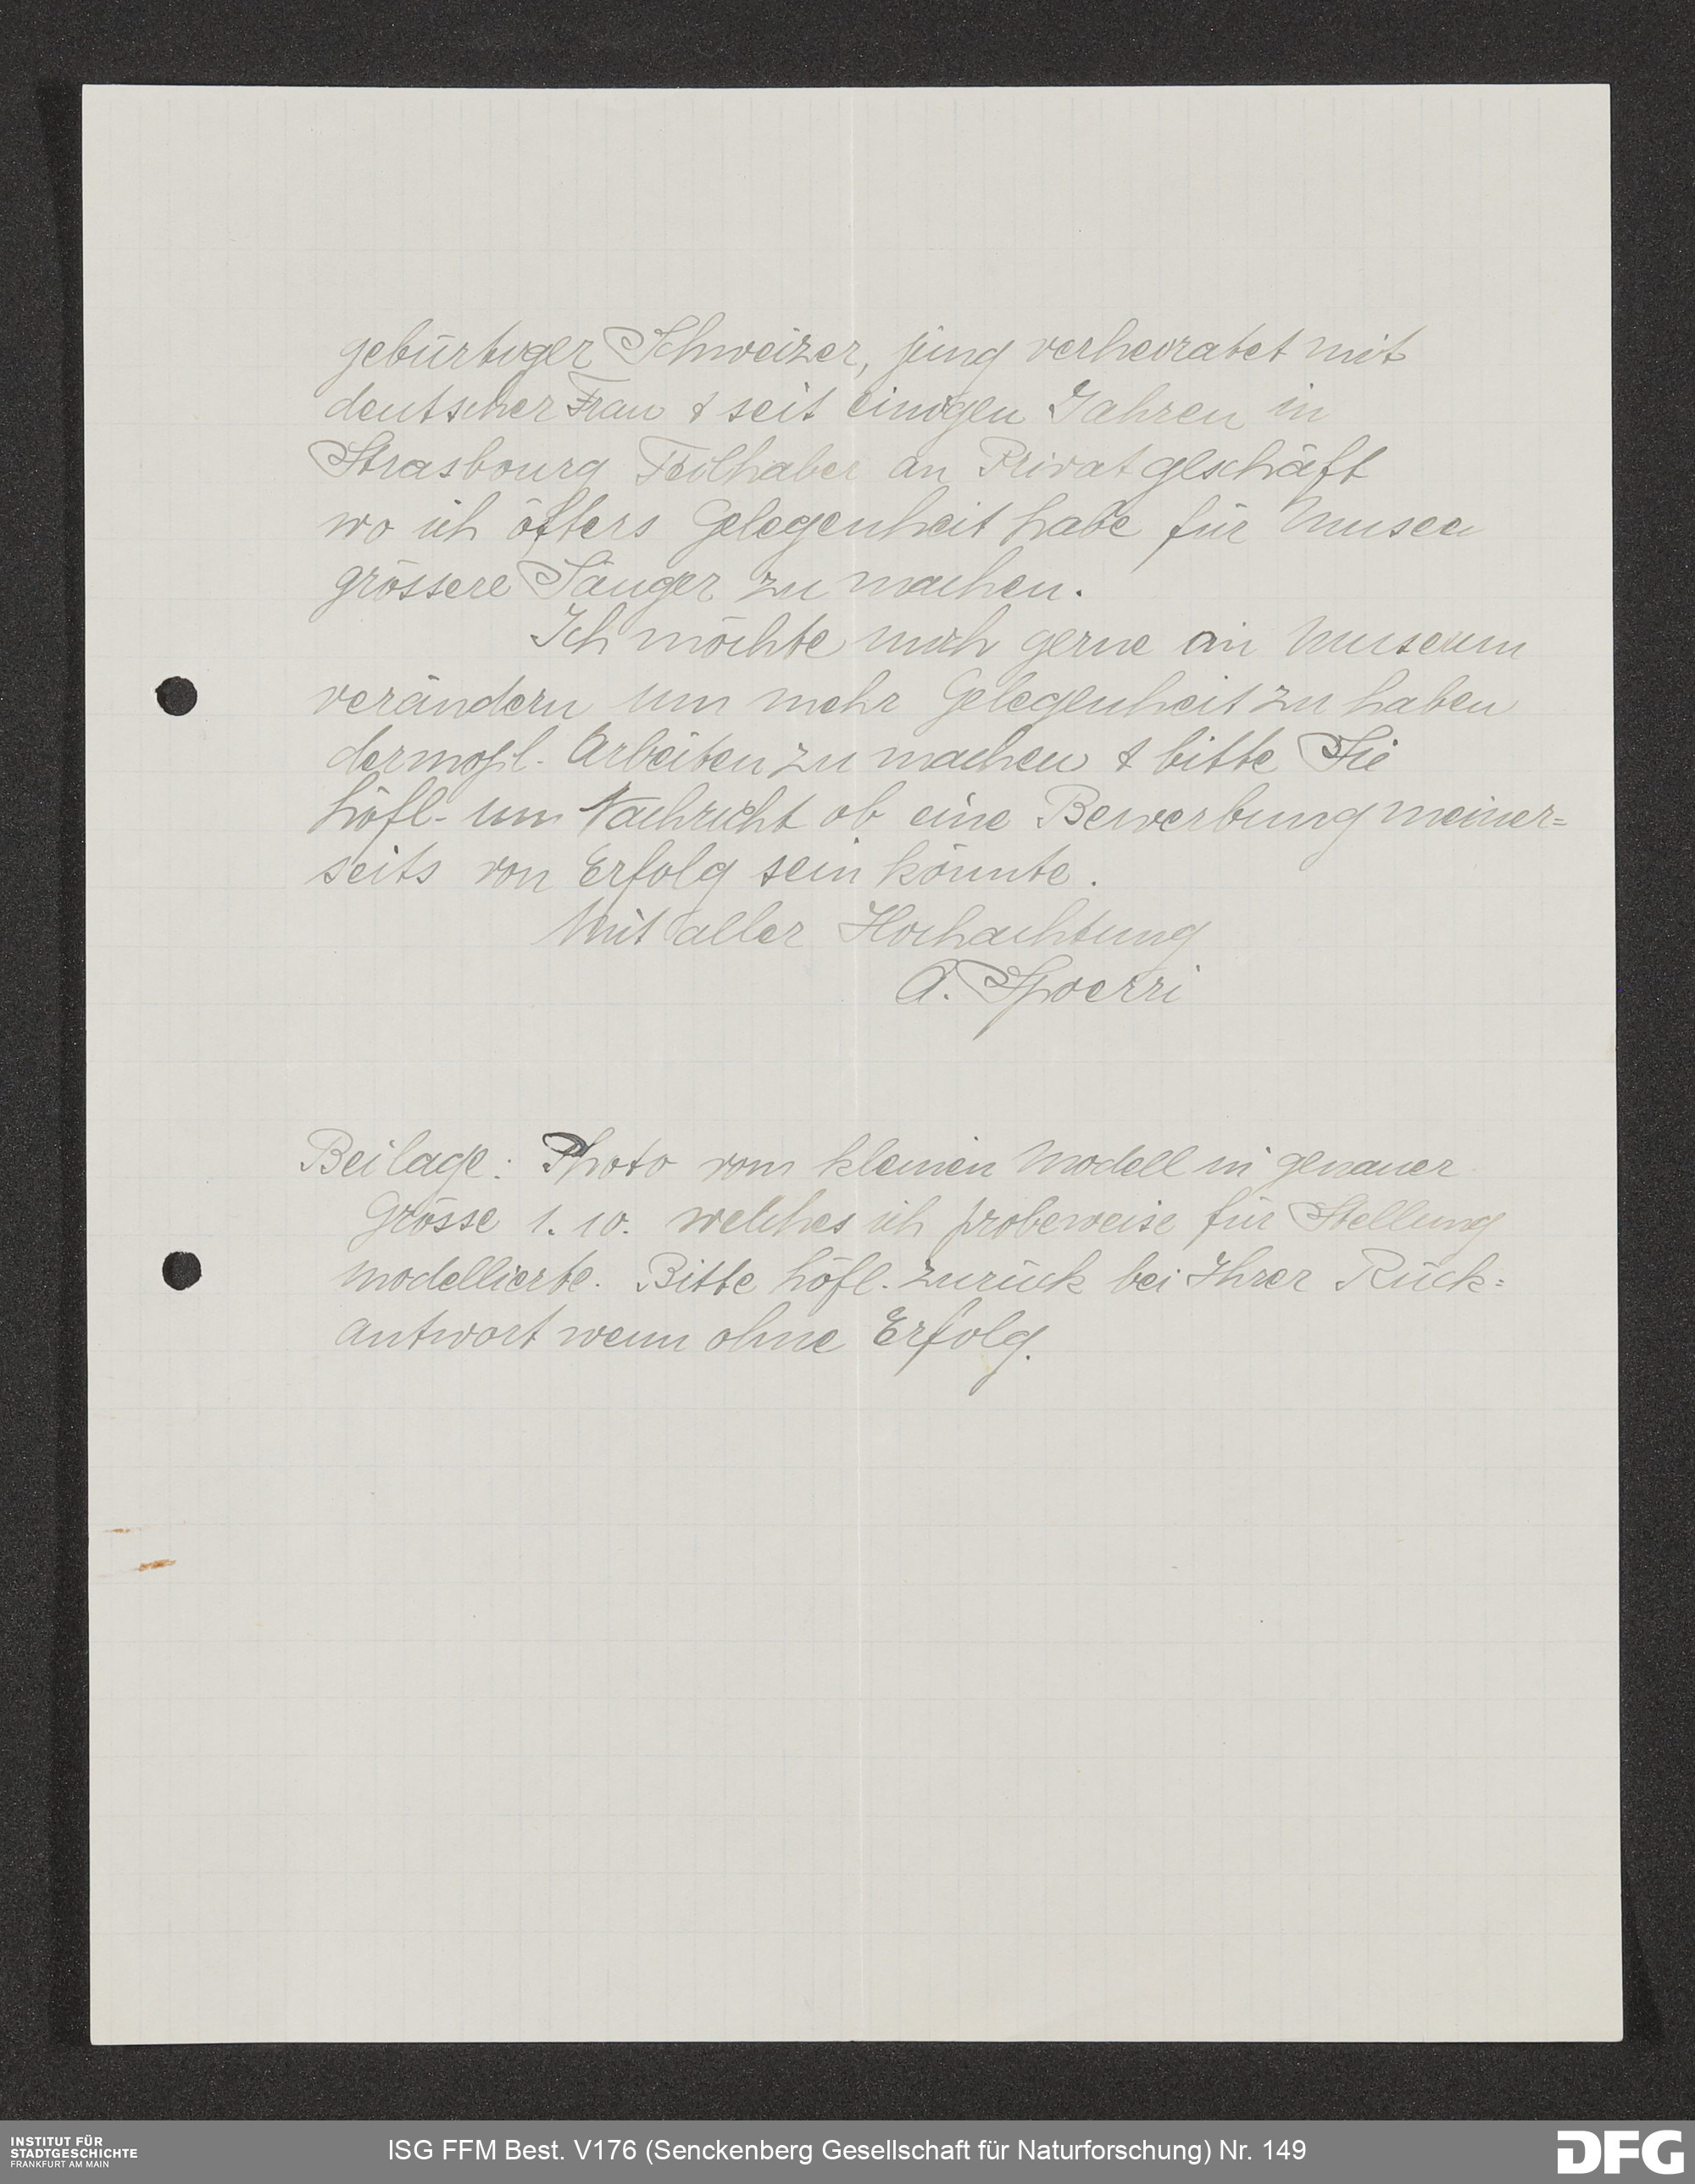 gebürtiger Schweizer, jung verheiratet mit
deutscher Frau & seit einigen Jahren in
Strasbourg Teilhaber an Privatgeschäft
wo ich öfters Gelegenheit habe für Museen
grössere Säuger zu machen.
Ich möchte mich gerne an Museum
verändern um mehr Gelegenheit zu haben
dermopl. Arbeiten zu machen & bitte Sie
höfl. um Nachricht ob eine Bewerbung meiner=
seits von Erfolg sein könnte.
Mit aller Hochachtung
A. Spoerri
Beilage: Photo vom kleinen Modell in genauer
Grösse 1. 10. welches ich probeweise für Stellung
modellierte. Bitte höfl. zurück bei Ihrer Rück=
antwort wenn ohne Erfolg.
INSTITUT FÜR
STADTGESCHICHTE
FRANKFURT AM MAIN
ISG FFM Best. V176 (Senckenberg Gesellschaft für Naturforschung) Nr. 149
DFG